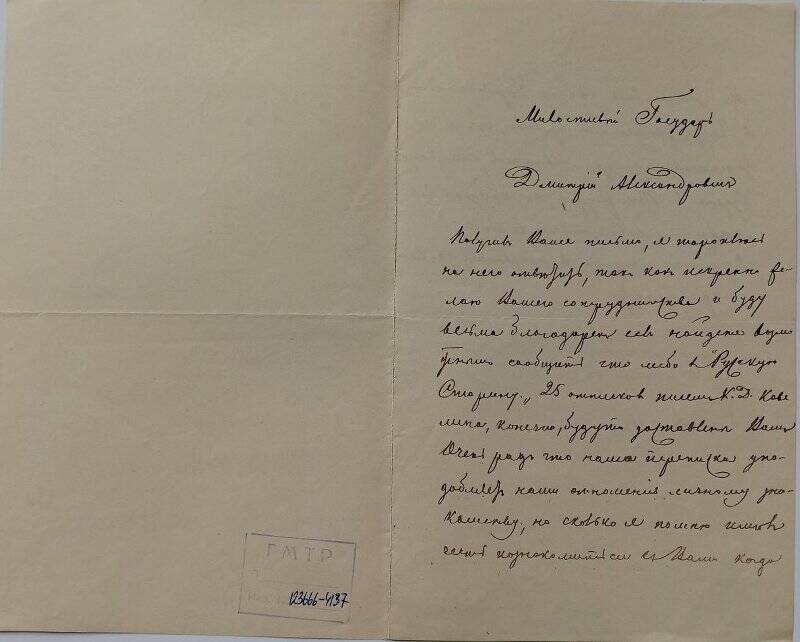 Милостивый Государь
Дмитрій Александровичъ
Получивъ Ваше письмо, я тороплюсь
на него отвѣтить, такъ какъ искренно же-
лаю Вашего сотрудничества и буду
весьма благодаренъ если найдете возмо
жнымъ сообщить что либо въ "Русскую
Старину". 25 оттисковъ писемъ К. Д. Каве
лина, конечно, будутъ доставлены Вамъ
Очень радъ что наша переписка упо-
добляетъ наши отношенія личному зна-
комству, но сколько я помню имѣлъ
познакомиться съ Вами когда
ГМТР
123666-4137